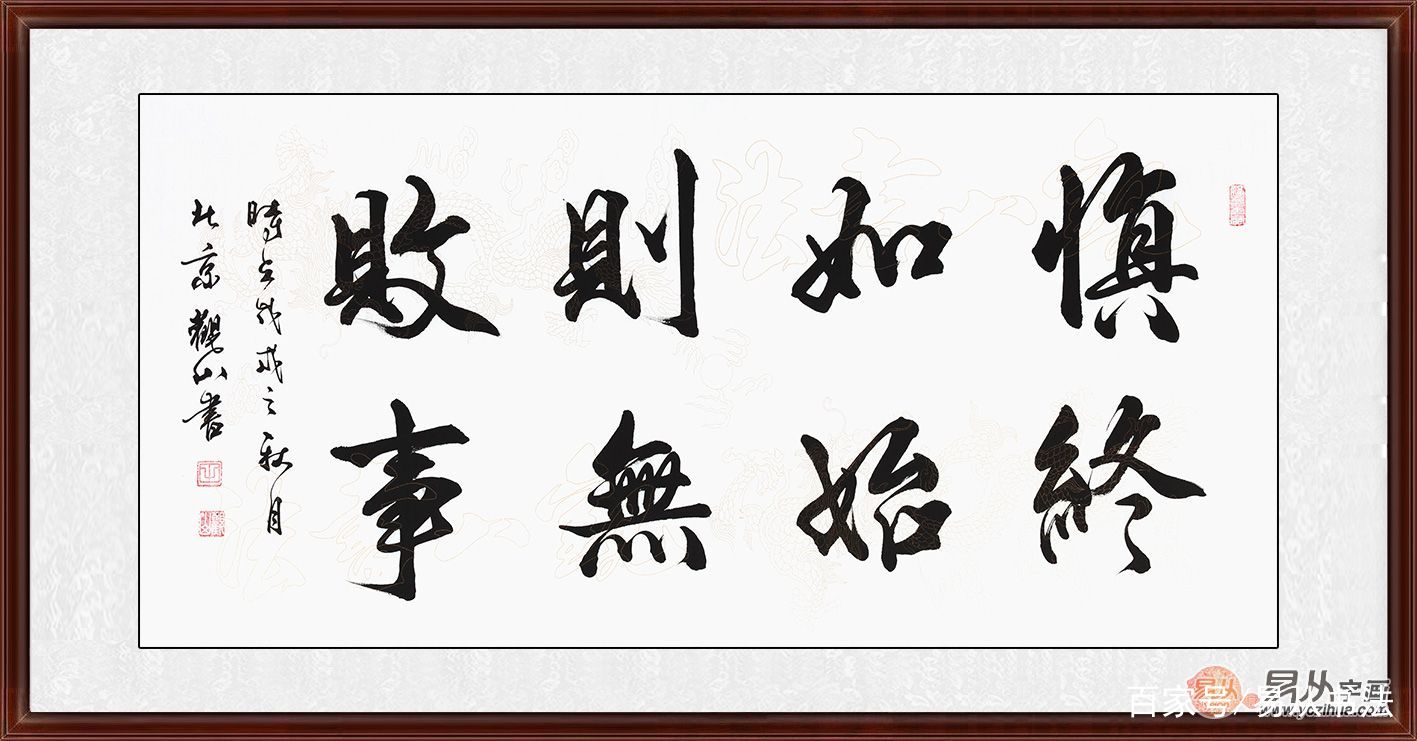 慎終
如始
則無
敗事
時在戊戌之秋月
北京觀山書
百家号
易从字画
www.yczihua.com